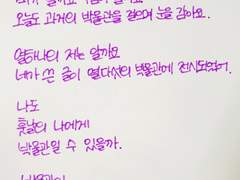 오늘도 과거의 박물관을 걸으며 눈을 감아요.
열하나의 저는 알까요
네가 쓴 글이 열다섯의 박물관에 전시되었어.
나도
훗날의 나에게
박물관일 수 있을까.